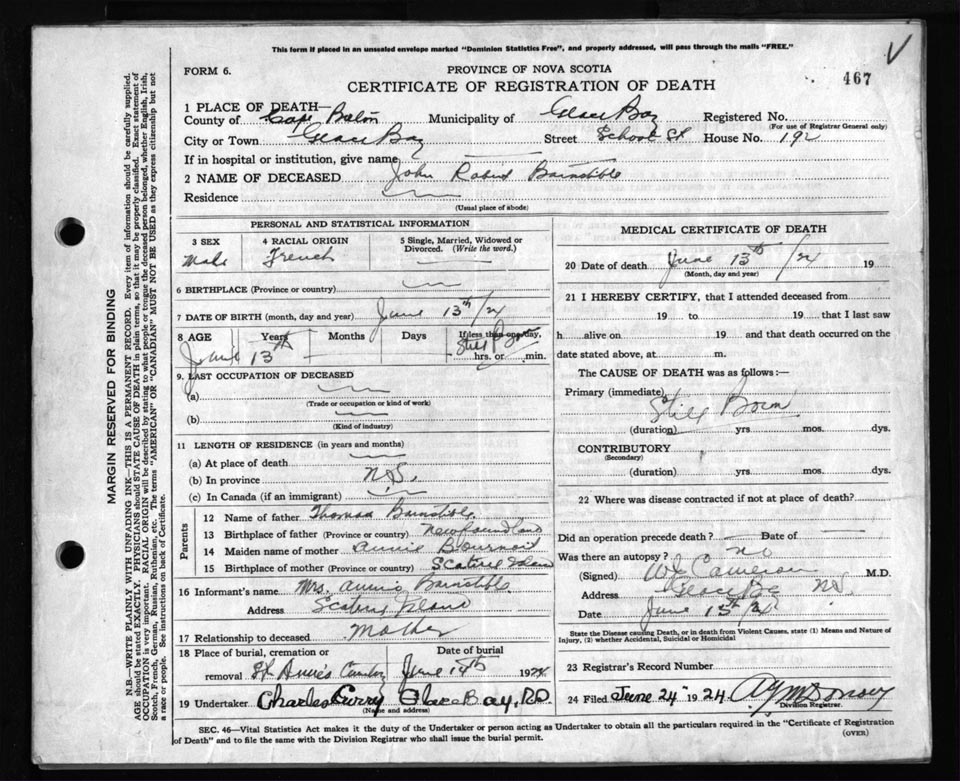 This form if placed in an unsealed envelope marked "Dominion Statistics Free", and properly addressed, will pass through the mails "FREE."
FORM 6.
PROVINCE OF NOVA SCOTIA
467
CERTIFICATE OF REGISTRATION OF DEATH
1 PLACE OF DEATH—
County of Cape Breton Municipality of Glace Bay Registered No.
(For use of Registrar General only)
City or Town Glace Bay Street School St House No. 192
If in hospital or institution, give name
2 NAME OF DECEASED John Robert Barnstible
Residence
(Usual place of abode)
PERSONAL AND STATISTICAL INFORMATION
3 SEX 4 RACIAL ORIGIN 5 Single, Married, Widowed or Divorced. (Write the word.)
Male French
6 BIRTHPLACE (Province or country)
7 DATE OF BIRTH (month, day and year) June 13th/24
8 AGE Years Months Days If less than one day,
June 13th Still Born
hrs. or min.
9. LAST OCCUPATION OF DECEASED
(a)
(Trade or occupation or kind of work)
(b)
(Kind of industry)
11 LENGTH OF RESIDENCE (in years and months)
(a) At place of death
(b) In province N.S.
(c) In Canada (if an immigrant)
Parents
12 Name of father Thomas Barnstible
13 Birthplace of father (Province or country) Newfoundland
14 Maiden name of mother Annie
15 Birthplace of mother (Province or country) Scatarie Island
16 Informant's name Mrs. Annie Barnstible
Address Scatarie Island
17 Relationship to deceased Mother
18 Place of burial, cremation or removal Date of burial
St Anne's June 14th 1924
19 Undertaker Charles Curry Glace Bay, R.D.
(Name and address)
MEDICAL CERTIFICATE OF DEATH
20 Date of death June 13th /24 19
(Month, day and year)
21 I HEREBY CERTIFY, that I attended deceased from
19 to 19 that I last saw
h alive on 19 and that death occurred on the
date stated above, at m.
The CAUSE OF DEATH was as follows:—
Primary (immediate) Still Born
(duration) yrs. mos. dys.
CONTRIBUTORY
(Secondary)
(duration) yrs. mos. dys.
22 Where was disease contracted if not at place of death?
Did an operation precede death? Date of
Was there an autopsy? no
(Signed) W Cameron M.D.
Address Glace Bay N.S.
Date June 15th/24
State the Disease causing Death, or in death from Violent Causes, state (1) Means and Nature of
Injury, (2) whether Accidental, Suicidal or Homicidal
23 Registrar's Record Number
24 Filed June 24 1924
Division Registrar.
SEC. 46—Vital Statistics Act makes it the duty of the Undertaker or person acting as Undertaker to obtain all the particulars required in the "Certificate of Registration
of Death" and to file the same with the Division Registrar who shall issue the burial permit.
(OVER)
MARGIN RESERVED FOR BINDING
N.B.—WRITE PLAINLY WITH UNFADING INK—THIS IS A PERMANENT RECORD. Every item of information should be carefully supplied.
AGE should be stated EXACTLY. PHYSICIANS should STATE CAUSE OF DEATH in plain terms, so that it may be properly classified. Exact statement of
OCCUPATION is very important. RACIAL ORIGIN will be described by stating to what people or tongue the deceased person belonged, whether English, Irish,
Scotch, French, German, Russian, Ruthenian, etc. The terms "AMERICAN" or "CANADIAN" MUST NOT BE USED as they express citizenship but not
a race or people. See instructions on back of Certificate.